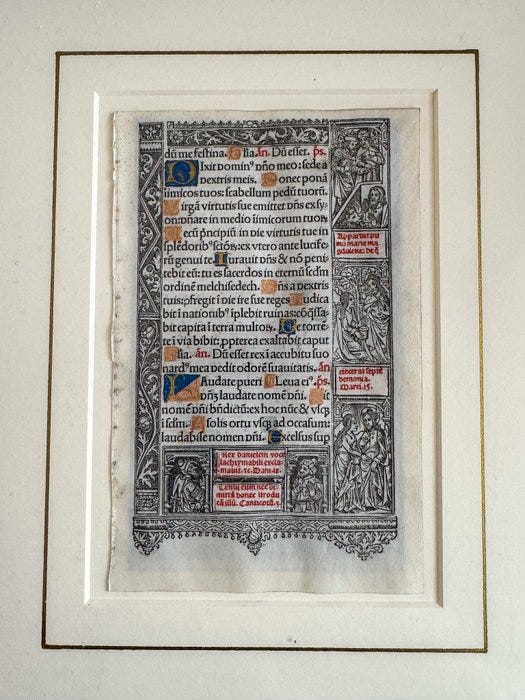 dũ me festina. Glia. añ. Dũ esset. ps.
Dixit dominꝰ dño meo: sede a
dextris meis. Donec ponã
iimicos tuos: scabellum pedũ tuorũ.
Virgã virtutis sue emittet dñs ex sy-
on: dñare in medio iimicorum tuoꝝ
Tecũ pñcipiũ in die virtutis tue in
splẽdoribꝰ sctõꝝ: ex vtero ante lucife-
rũ genui te. Iurauit dñs & nõ peni-
tebit eũ: tu es sacerdos in eternũ scđm
ordinẽ melchisedech. Dñs a dextris
tuis: ꝯfregit ĩ die ire sue reges. Iudica
bit ĩ nationibꝰ ĩplebit ruinas: cõq̃ssa-
bit capita ĩ terra multoꝝ. De torrẽ
te ĩ via bibit: ꝓpterea exaltabit caput
Glia. añ. Dũ esset rex ĩ accubitu suo
nardꝰ mea dedit odorẽ suauitatis. añ
Laudate pueri Leua eiꝰ. ps.
dñ̃s laudate nomẽ dñi. Sit
nomẽ dñi bñdictũ: ex hoc nũc & vsq̃
scl̃m. A solis ortu vsq̃ ad occasum:
laudabile nomen dñi. Excelsus sup
Apparuit pri
mo marie ma
gdalene: de q̃
eiecerat septẽ
demonia.
Marci. 15.
Rex danielem voce
lachrymabili excla-
mauit. ⁊c. Dani. 15.
Tenui eum nec di-
mittã donec ĩtrodu
cã illũ. Canticoꝝ. 3.